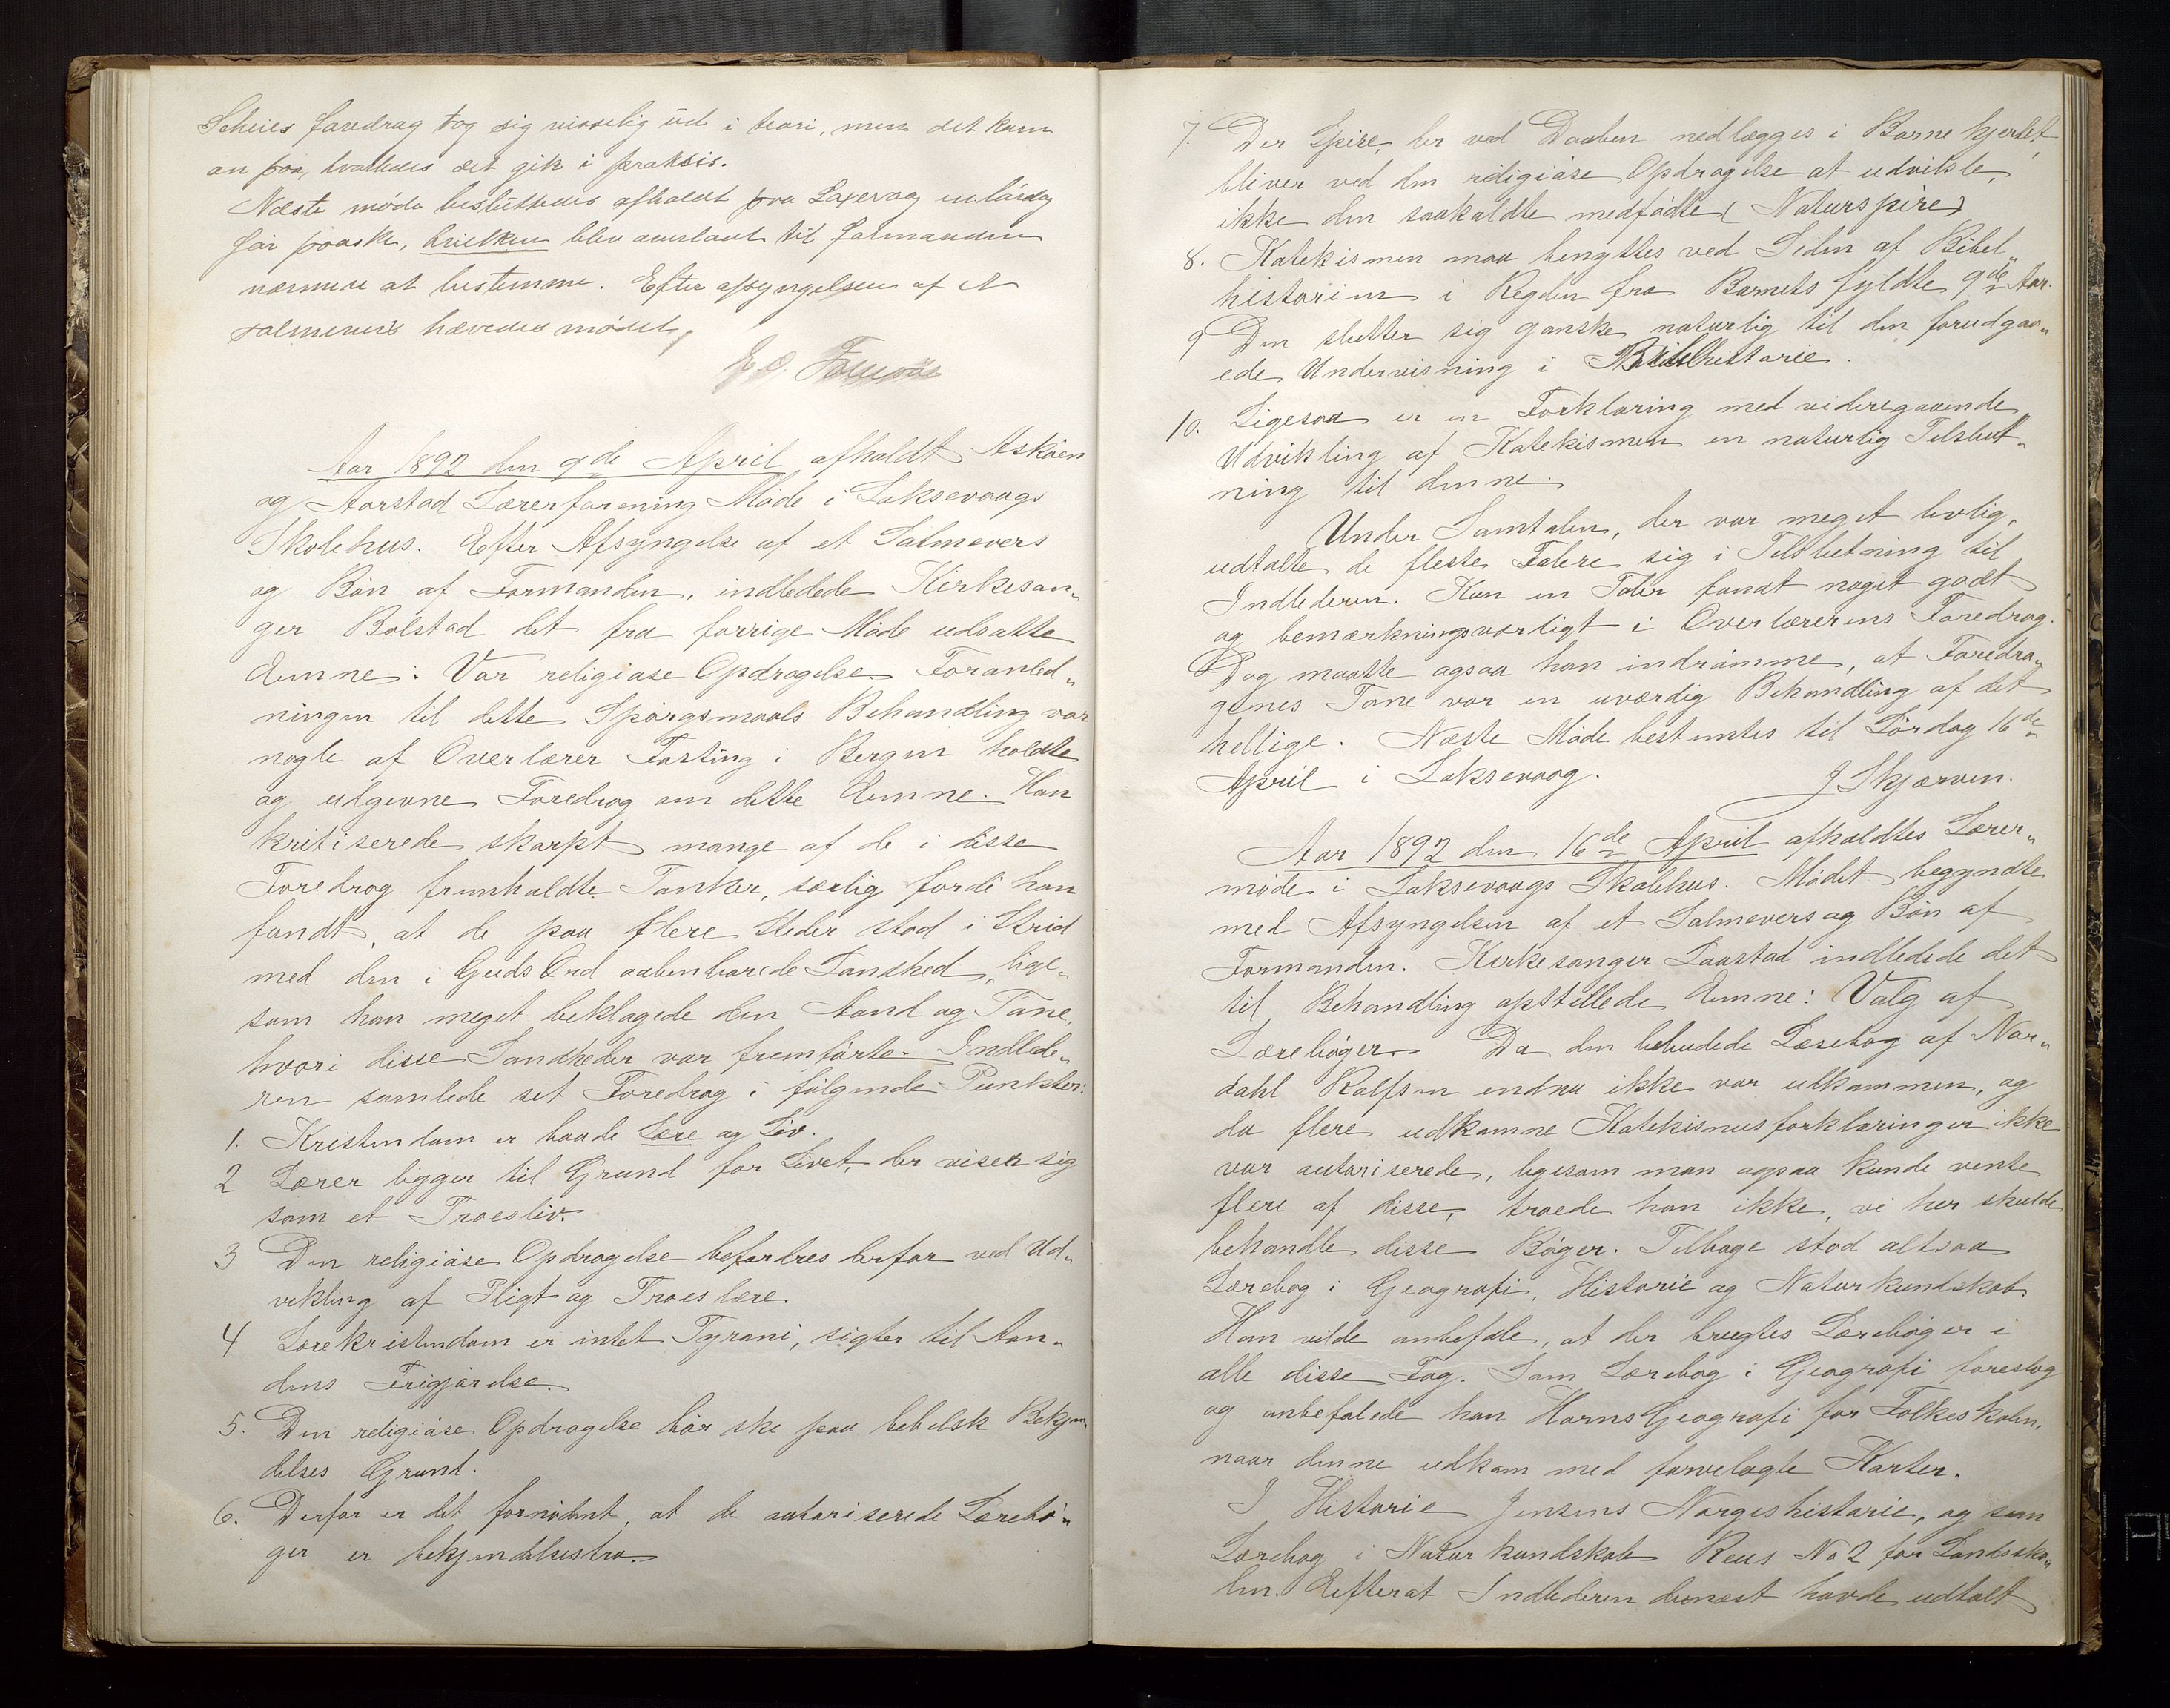 Scheies foredrag tog sig visselig ud i teori, men det kom
an paa, hvorledes det gik i praksis.
Næste møde besluttedes afholdt paa Laxevaag en lördag
för paaske, hvilken blev overladt til formanden
nærmere at bestemme. Efter afsyngelsen af et
salmevers hævedes mödet,
Aar 1892 den 9de April afholdt Asköen
og Aarstad Lærerforening Möde i Laksevaags
Skolehus. Efter Afsyngelse af et Salmevers
og Bön af Formanden, indledede Kirkesan„
ger Bolstad det fra forrige Möde udsatte
Emne: Vor religiöse Opdragelse. Foranled„
ningen til dette Spörgsmaals Behandling var
nogle af Overlærer Fasting i Bergen holdte
og udgivne Foredrag om dette Emne. Han
kritiserede skarpt mange af de i disse
Foredrag fremholdte Tanker, særlig fordi han
fandt, at de paa flere Steder stod i Strid
med den i Guds Ord aabenbarede Sandhed, lige„
som han meget beklagede den Aand og Tone,
hvori disse Sandheder var fremförte. Indlede„
ren samlede sit Foredrag i fölgende Punkter:
1. Kristendom er baade Lære og Liv.
2 Lærer ligger til Grund for Livet, der viser sig
som et Troesliv.
3 Den religiöse Opdragelse befordres derfor ved Ud„
vikling af Pligt og Troeslære
4 Lærekristendom er intet Tyrani, sigter til Aan„
dens Frigjörelse.
5. Den religiöse Opdragelse bör ske paa bibelsk Bekjen„
delses Grund.
6. Derfor er det fornödent, at de autoriserede Lærebö„
ger er bekjendelsestro.
7. Den Spire, der ved Daaben nedlægges i Barnehjertet,
bliver ved den religiöse Opdragelse at udvikle,
ikke den saakaldte medfödte (Naturspire)
8. Katekismen maa benyttes ved Siden af Bibel„
historien i Regelen fra Barnets fyldte 9de Aar.
9 Den slutter sig ganske naturlig til den forudgaa„
ede Undervisning i Bibelhistorie.
10. Ligesaa er en Forklaring med videregaaende
Udvikling af Katekismen en naturlig Tilslut„
ning til denne.
Under Samtalen, der var meget livlig,
udtalte de fleste Talere sig i Tilslutning til
Indlederen. Kun en Taler fandt noget godt
og bemærkningsværdigt i Overlærerens Foredrag.
Dog maatte ogsaa han indrömme, at Foredra„
genes Tone var en uværdig Behandling af det
hellige. Næste Möde bestemtes til Lördag 16de
April i Laksevaag.
J Skjærven.
Aar 1892 den 16de April afholdtes Lærer„
möde i Laksevaags Skolehus. Mödet begyndte
med Afsyngelsen af et Salmevers og Bön af
Formanden. Kirkesanger Laastad indledede det
til Behandling opstillede Emne: Valg af
Lærebøger. Da den bebudede Læsebog af Nor„
dahl Rolfsen endnu ikke var udkommen, og
da flere udkomne Katekismusforklaringer ikke
var autoriserede, ligesom man ogsaa kunde vente
flere af disse, troede han ikke, vi her skulde
behandle disse Bøger. Tilbage stod altsaa
Lærebog i Geografi, Historie og Naturkundskab.
Han vilde anbefale, at der brugtes Lærebøger i
alle disse Fag. Som Lærebog i Geografi foreslog
og anbefalede han Horns Geografi for Folkeskolen,
naar denne udkom med farvelagte Karter.
I Historie Jensens Norgeshistorie, og som
Lærebog i Naturkundskab Reus No 2 for Landssko„
len. Efterat Indlederen dernæst havde udtalt